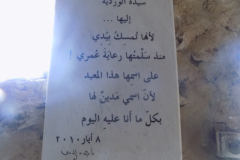 سيدة الوردية
إليها ...
لأنها تُمسِكُ بِيَدي
منذ سَلّمتُها رعايَةَ عُمري !
على اسمِها هذا المَعبد
لأنّ اسمي مَدينٌ لها
بكلّ ما أنا عليهِ اليوم
٨ أيار ٢٠١٠